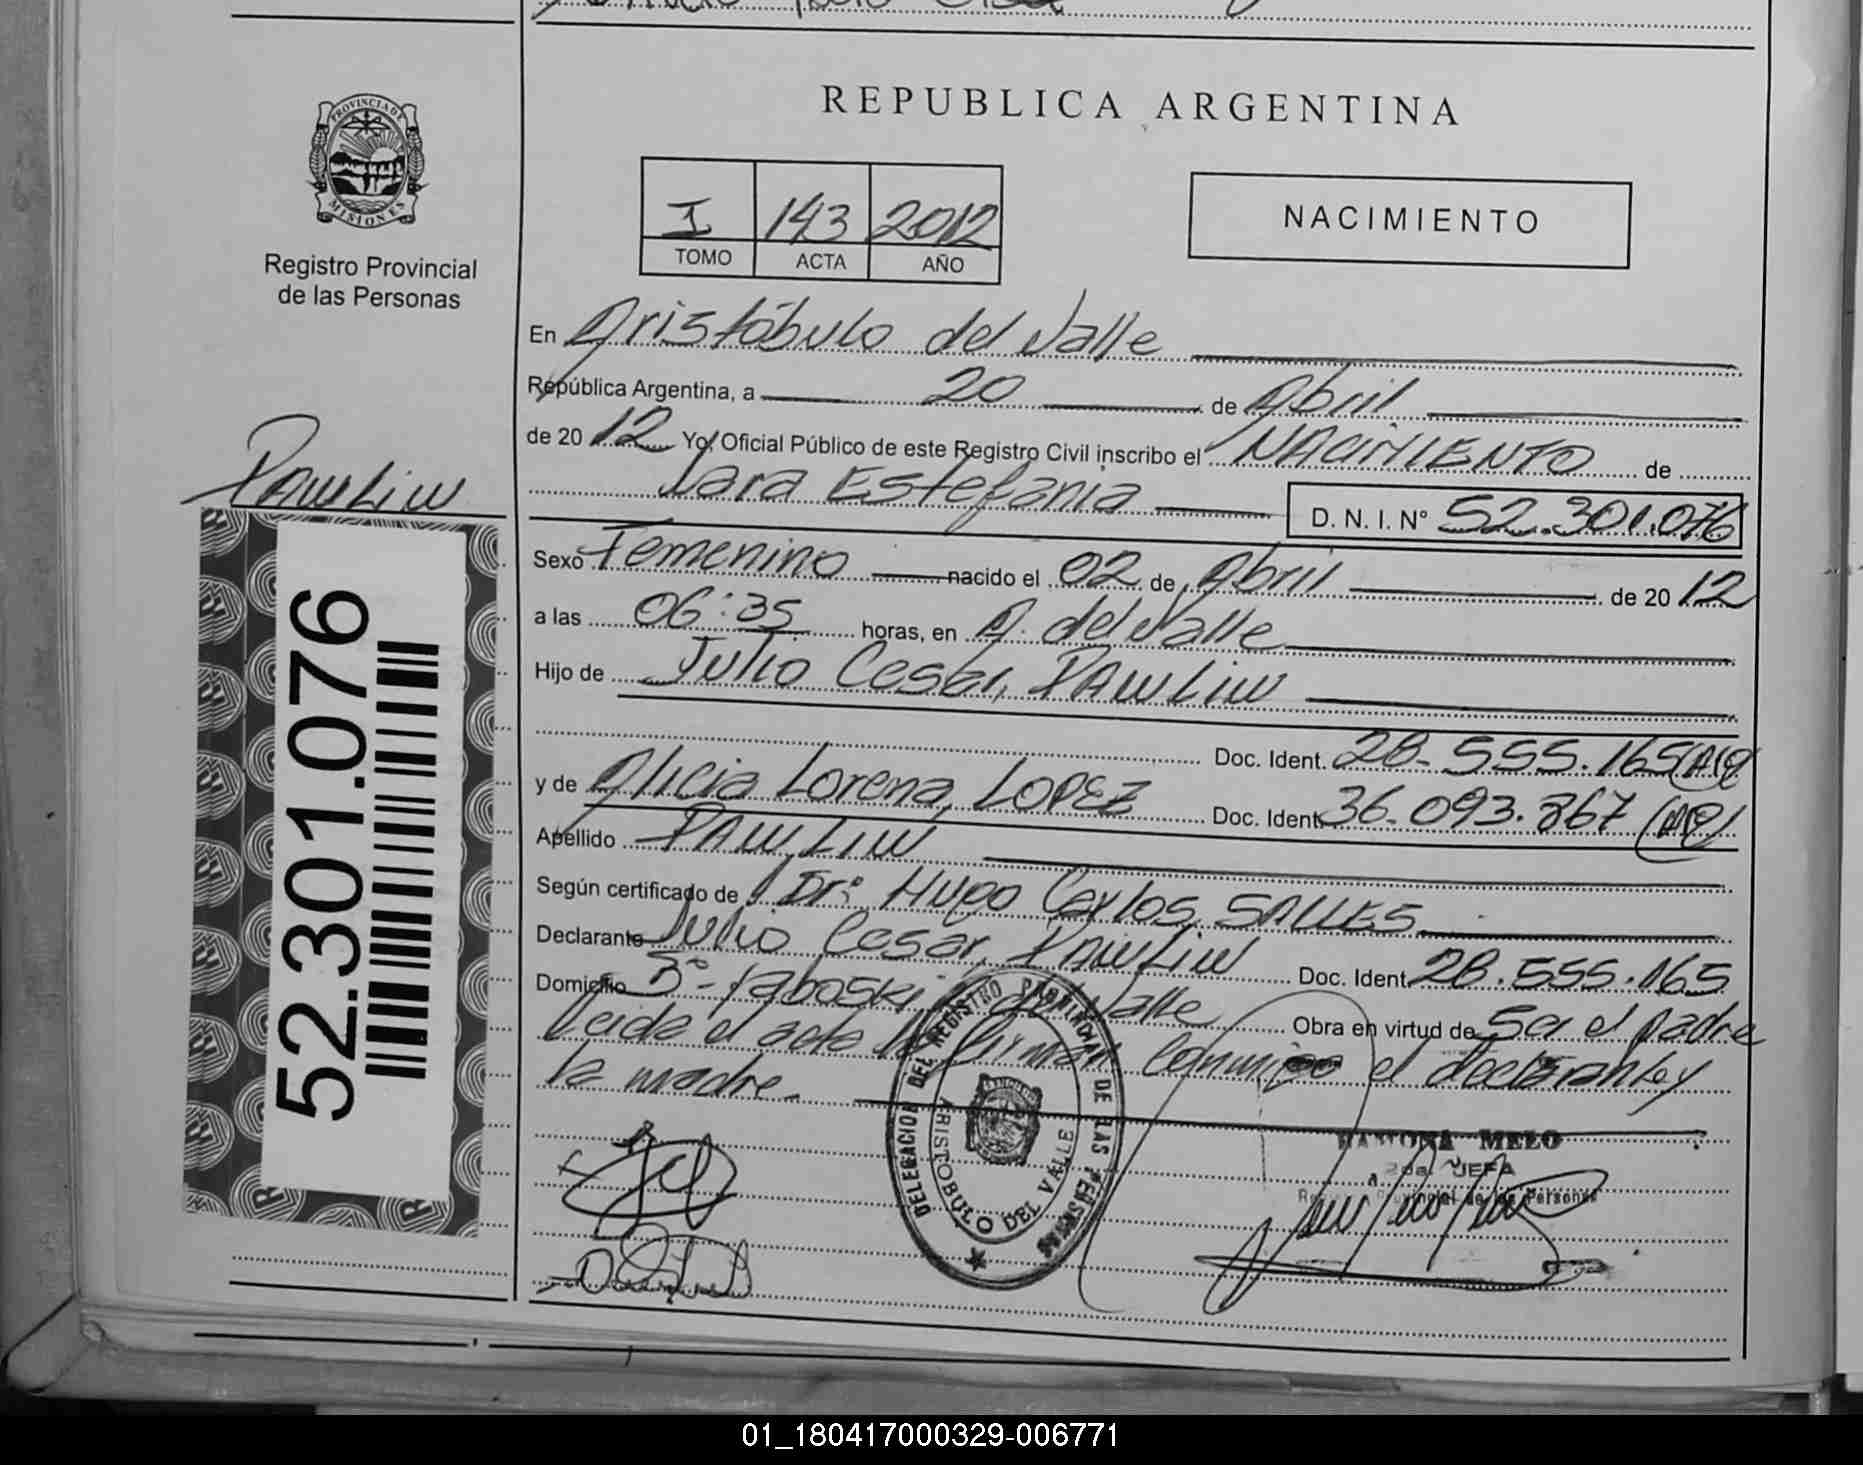 REPUBLICA ARGENTINA
PROVINCIA DE
MISIONES
Registro Provincial
de las Personas
I 143 2012
TOMO ACTA AÑO
NACIMIENTO
En Aristóbulo del Valle
República Argentina, a 20 de Abril
de 20 12 Yo, Oficial Público de este Registro Civil inscribo el NACIMIENTO de
Iara Estefania D. N. I. Nº 52.301.076
PAWLIW
52.301.076
Sexo Femenino nacido el 02 de Abril de 20 12
a las 06:35 horas, en A. del Valle
Hijo de Julio Cesar, PAWLIW
Doc. Ident. 28.555.165
y de Alicia Lorena, LOPEZ Doc. Ident. 36.093.867
Apellido PAWLIW
Según certificado de Dr: Hugo Carlos, SALLES
Declarante Julio Cesar, PAWLIW Doc. Ident. 28.555.165
Domicilio Bº Valle Obra en virtud de Ser el padre
Leida el acta la firman conmigo el declarante y
la madre
DELEGACION DEL REGISTRO PROVINCIAL DE LAS PERSONAS
ARISTOBULO DEL VALLE
RAMONA MELO
2da. JEFA
Registro Provincial de las Personas
01_180417000329-006771